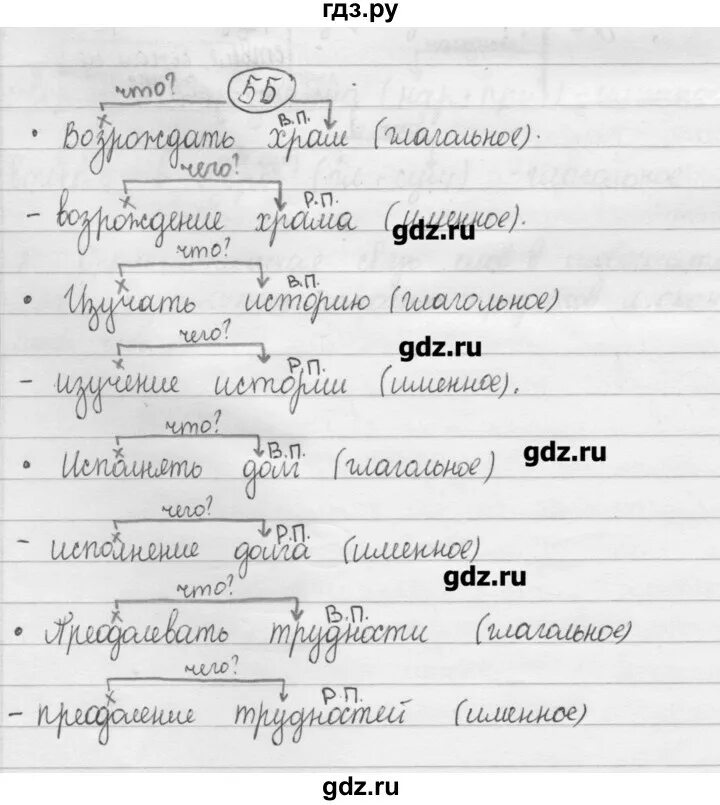 гдз.ру
что? 55
В.П.
• Возрождать храм (глагольное).
чего?
Р.П.
- возрождение храма (именное).
gdz.ru
что?
В.П.
• Изучать историю (глагольное)
чего?
gdz.ru
Р.П.
- изучение истории (именное).
что?
В.П.
• Исполнять долг (глагольное)
gdz.ru
чего?
Р.П.
- исполнение долга (именное)
gdz.ru
что?
В.П.
• Преодолевать трудности (глагольное)
чего?
Р.П.
- преодоление трудностей (именное)
gdz.ru